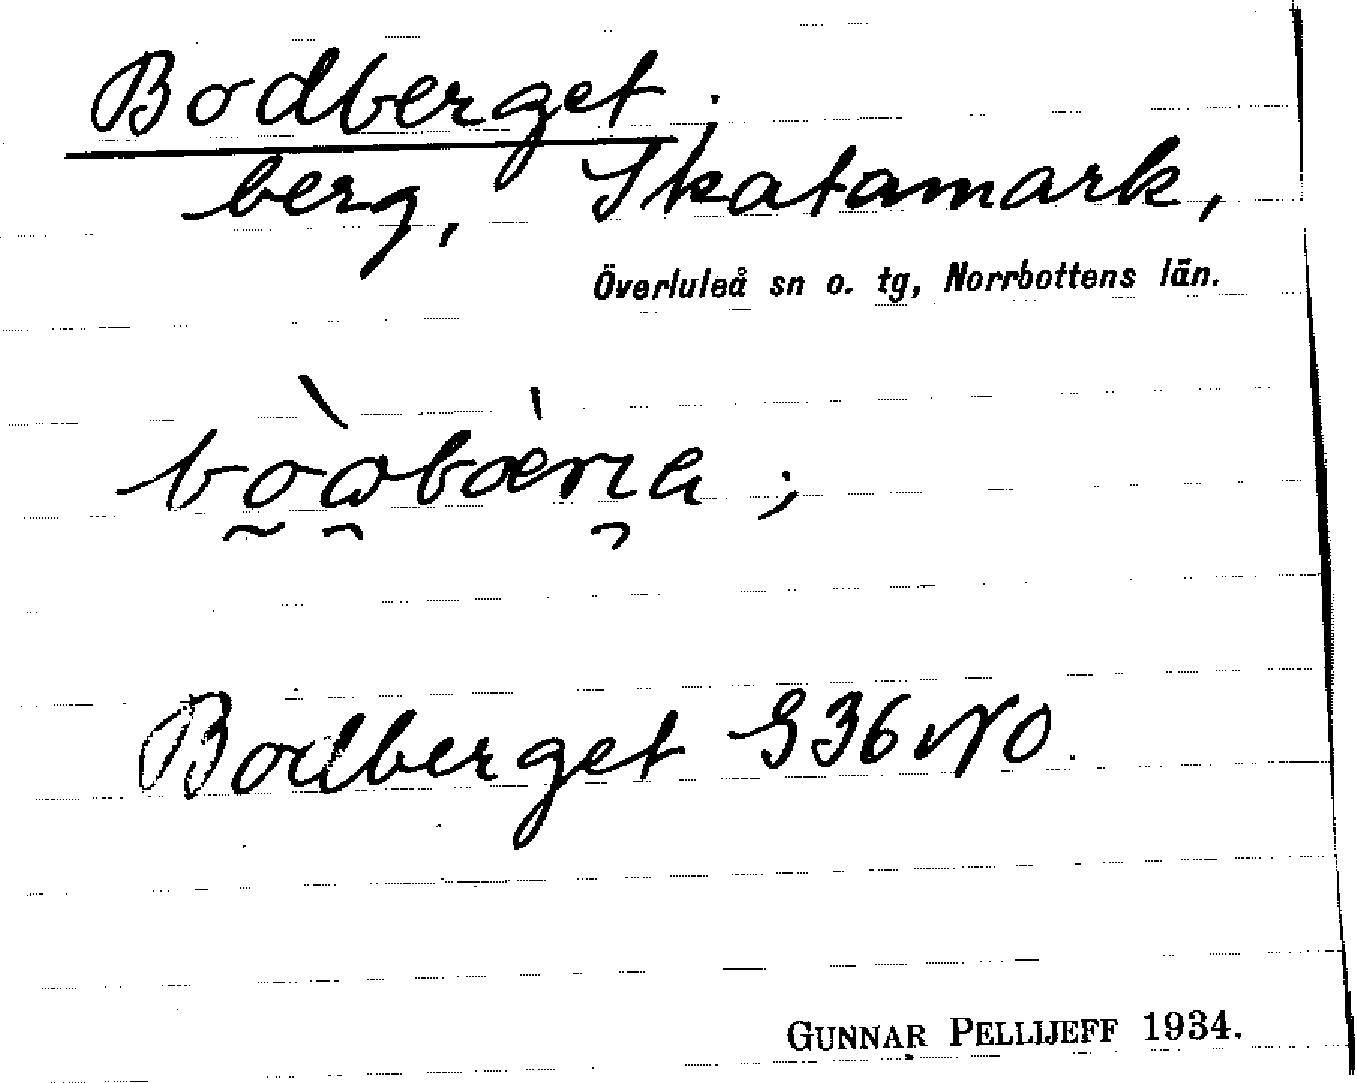 Bodberget;
berg, Skatamark,
Överluleå sn o. tg, Norrbottens län.
Bodberget G36NO.
GUNNAR PELLIJEFF 1934.